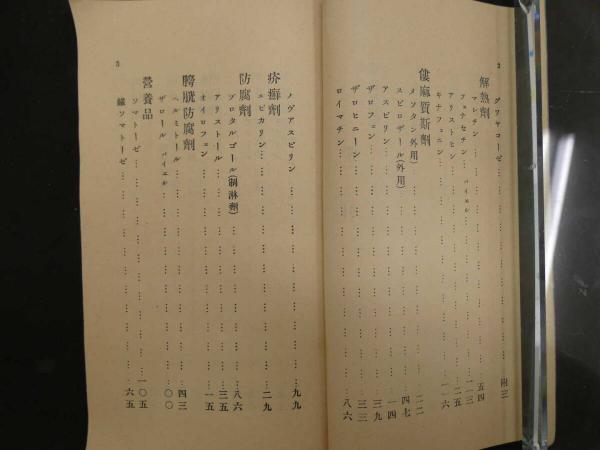 2
グワヤコーゼ……附三
解熱劑
マレチン……五四
フェナセチン、バイエル……一三
アリストヒン……二五
キナフェニン……一六
僂麻質斯劑
メソタン(外用)……二二
スピロザール(外用)……四七
アスピリン……一四
ザロフェン……三九
ザロヒニーン……三三
ロイマチン……八六
ノヴアスピリン……九九
疥癬劑
エピカリン……二九
防腐劑
プロタルゴール(制淋劑)……八六
アリストール……三五
オイロフェン……一五
膀胱防腐劑
ヘルミトール……四三
ザロール、バイエル……
營養品
ソマトーゼ……一〇五
鐵ソマトーゼ……六五
3